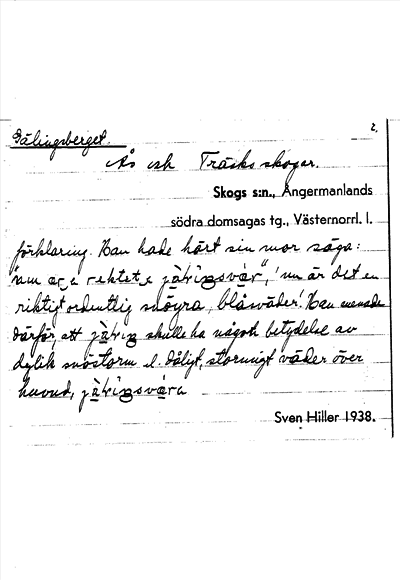 Jälingsberget.
2.
Ås och Träsks skogar.
Skogs s:n., Ångermanlands
södra domsagas tg., Västernorrl. l.
förklaring. Han hade hört sin mor säga:
'nu är det en
riktigt ordentlig snöyra, blåsväder'. Han menade
därför, att skulle ha något betydelse av
dylik snöstorm el. dåligt, stormigt väder över
huvud,
Sven Hiller 1938.